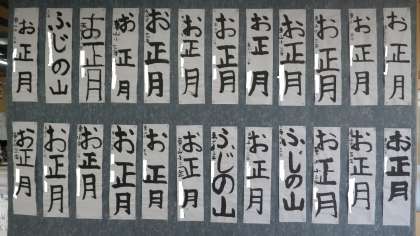 お正月
お正月
お正月
お正月
お正月
お正月
お正月
お正月
お正月
お正月
ふじの山
お正月
お正月
お正月
お正月
ふじの山
お正月
ふじの山
お正月
お正月
お正月
お正月
お正月
お正月